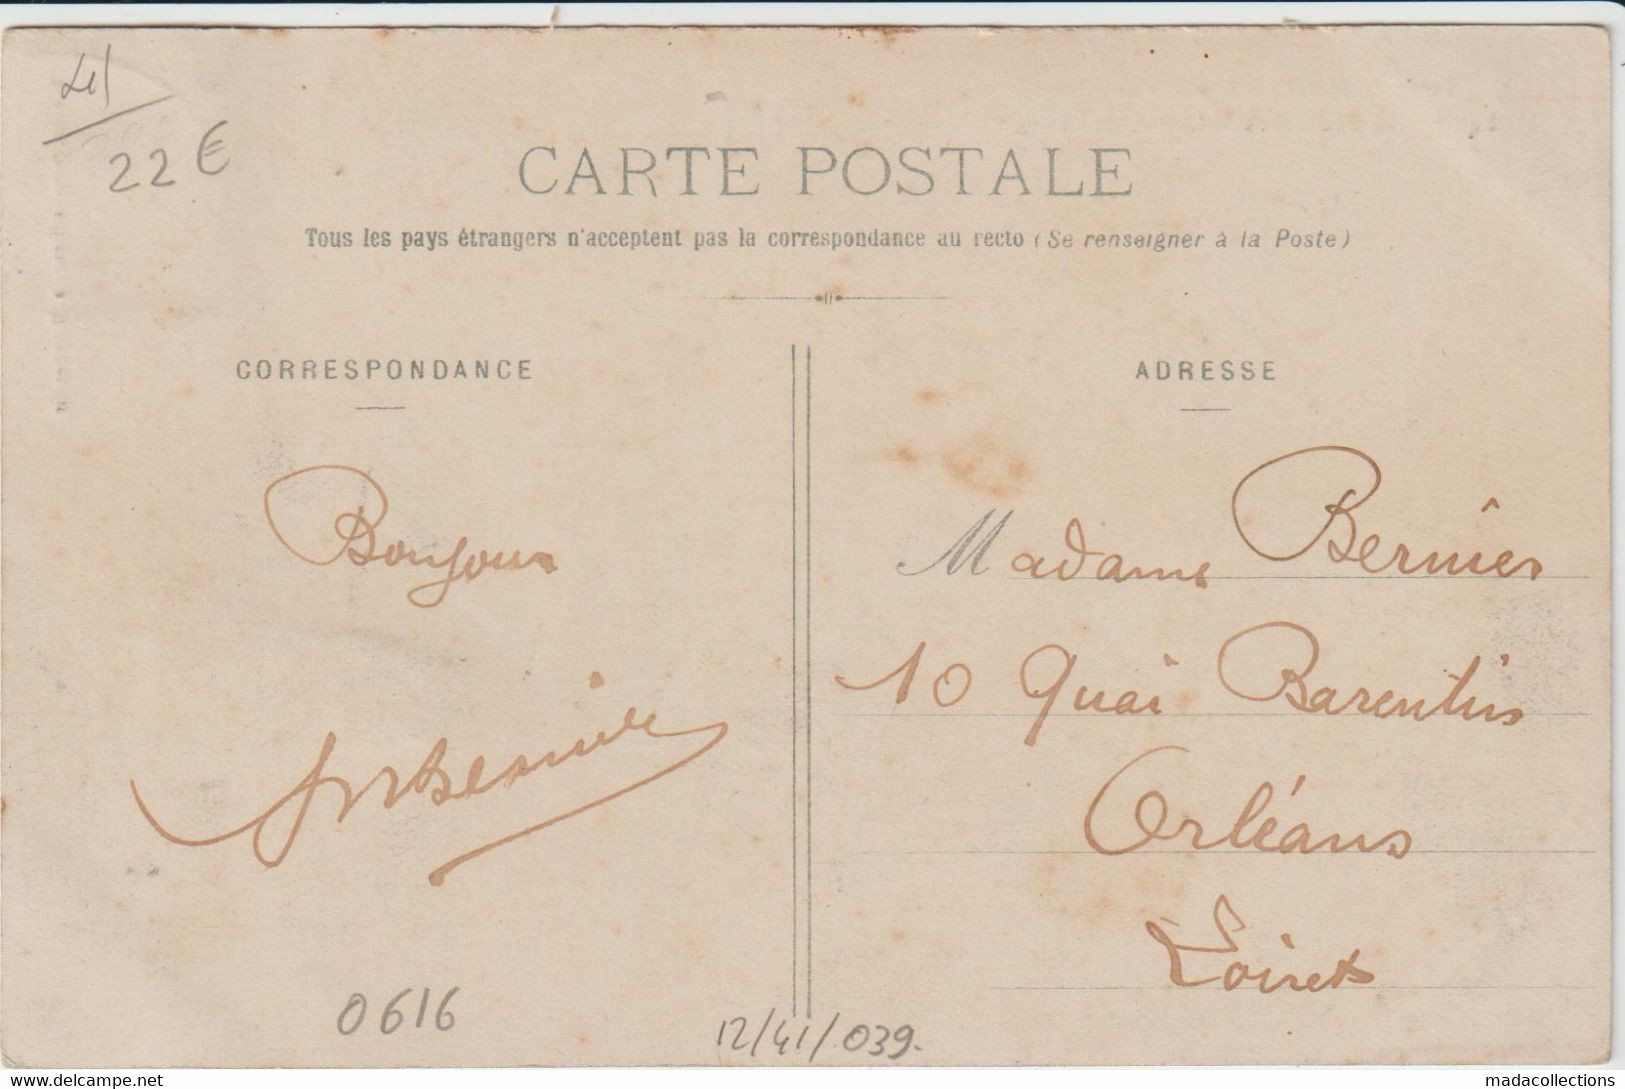 41
22 €
CARTE POSTALE
Tous les pays étrangers n'acceptent pas la correspondance au recto (Se renseigner à la Poste)
CORRESPONDANCE
Bonjour
0616
ADRESSE
Madame Bernier
10 Quai Barentin
Orléans
Loiret
12/41/039.
www.delcampe.net
madacollections